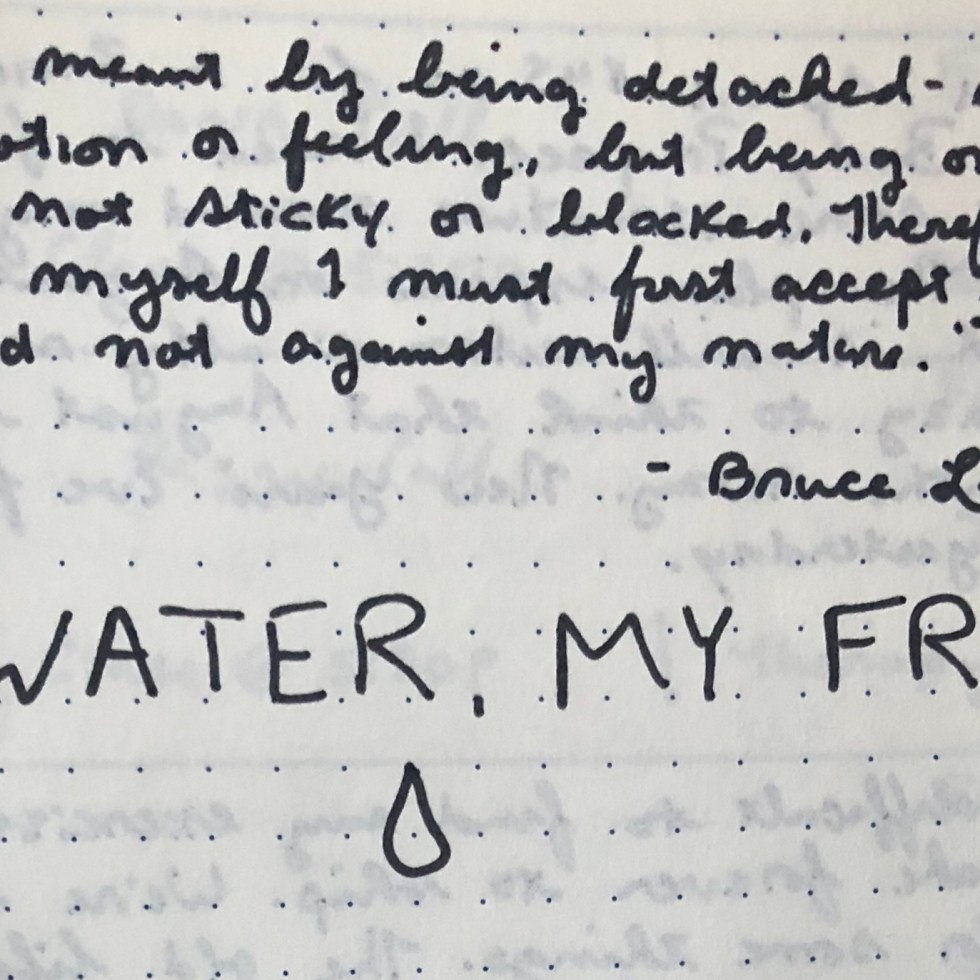 meant by being detached-
otion or feeling, but being
not sticky or blocked. Theref
myself I must first accept
d not against my nature."
- Bruce L
WATER, MY FR